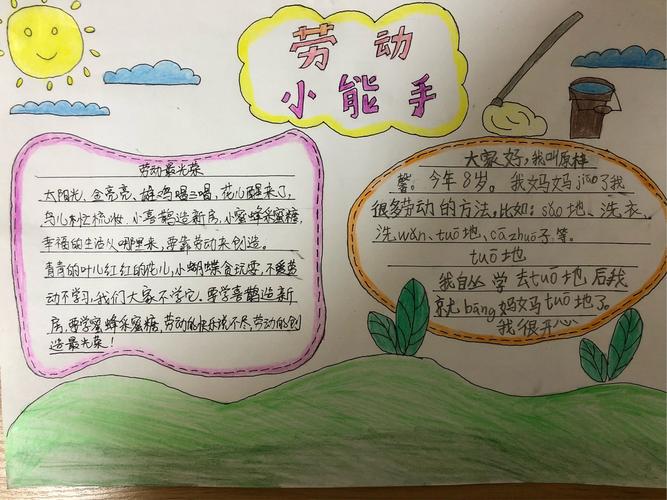 劳动
小能手
劳动最光荣
太阳光，金亮亮，雄鸡唱三唱，花儿醒来了，
鸟儿忙梳妆，小喜鹊造新房，小蜜蜂采蜜糖，
幸福的生活从哪里来，要靠劳动来创造。
青青的叶儿红红的花儿，小蝴蝶贪玩耍，不爱劳
动不学习，我们大家不学它，要学喜鹊造新
房，要学蜜蜂采蜜糖，劳动的快乐说不尽，劳动的创
造最光荣！
大家好，我叫原梓
馨。今年8岁。我妈妈jiāo了我
很多劳动的方法，比如：sǎo地、洗衣、
洗wǎn、tuō地、cā zhuō子等。
tuō地
我自从学去tuō地后我
就bāng妈妈tuō地了。
我很开心